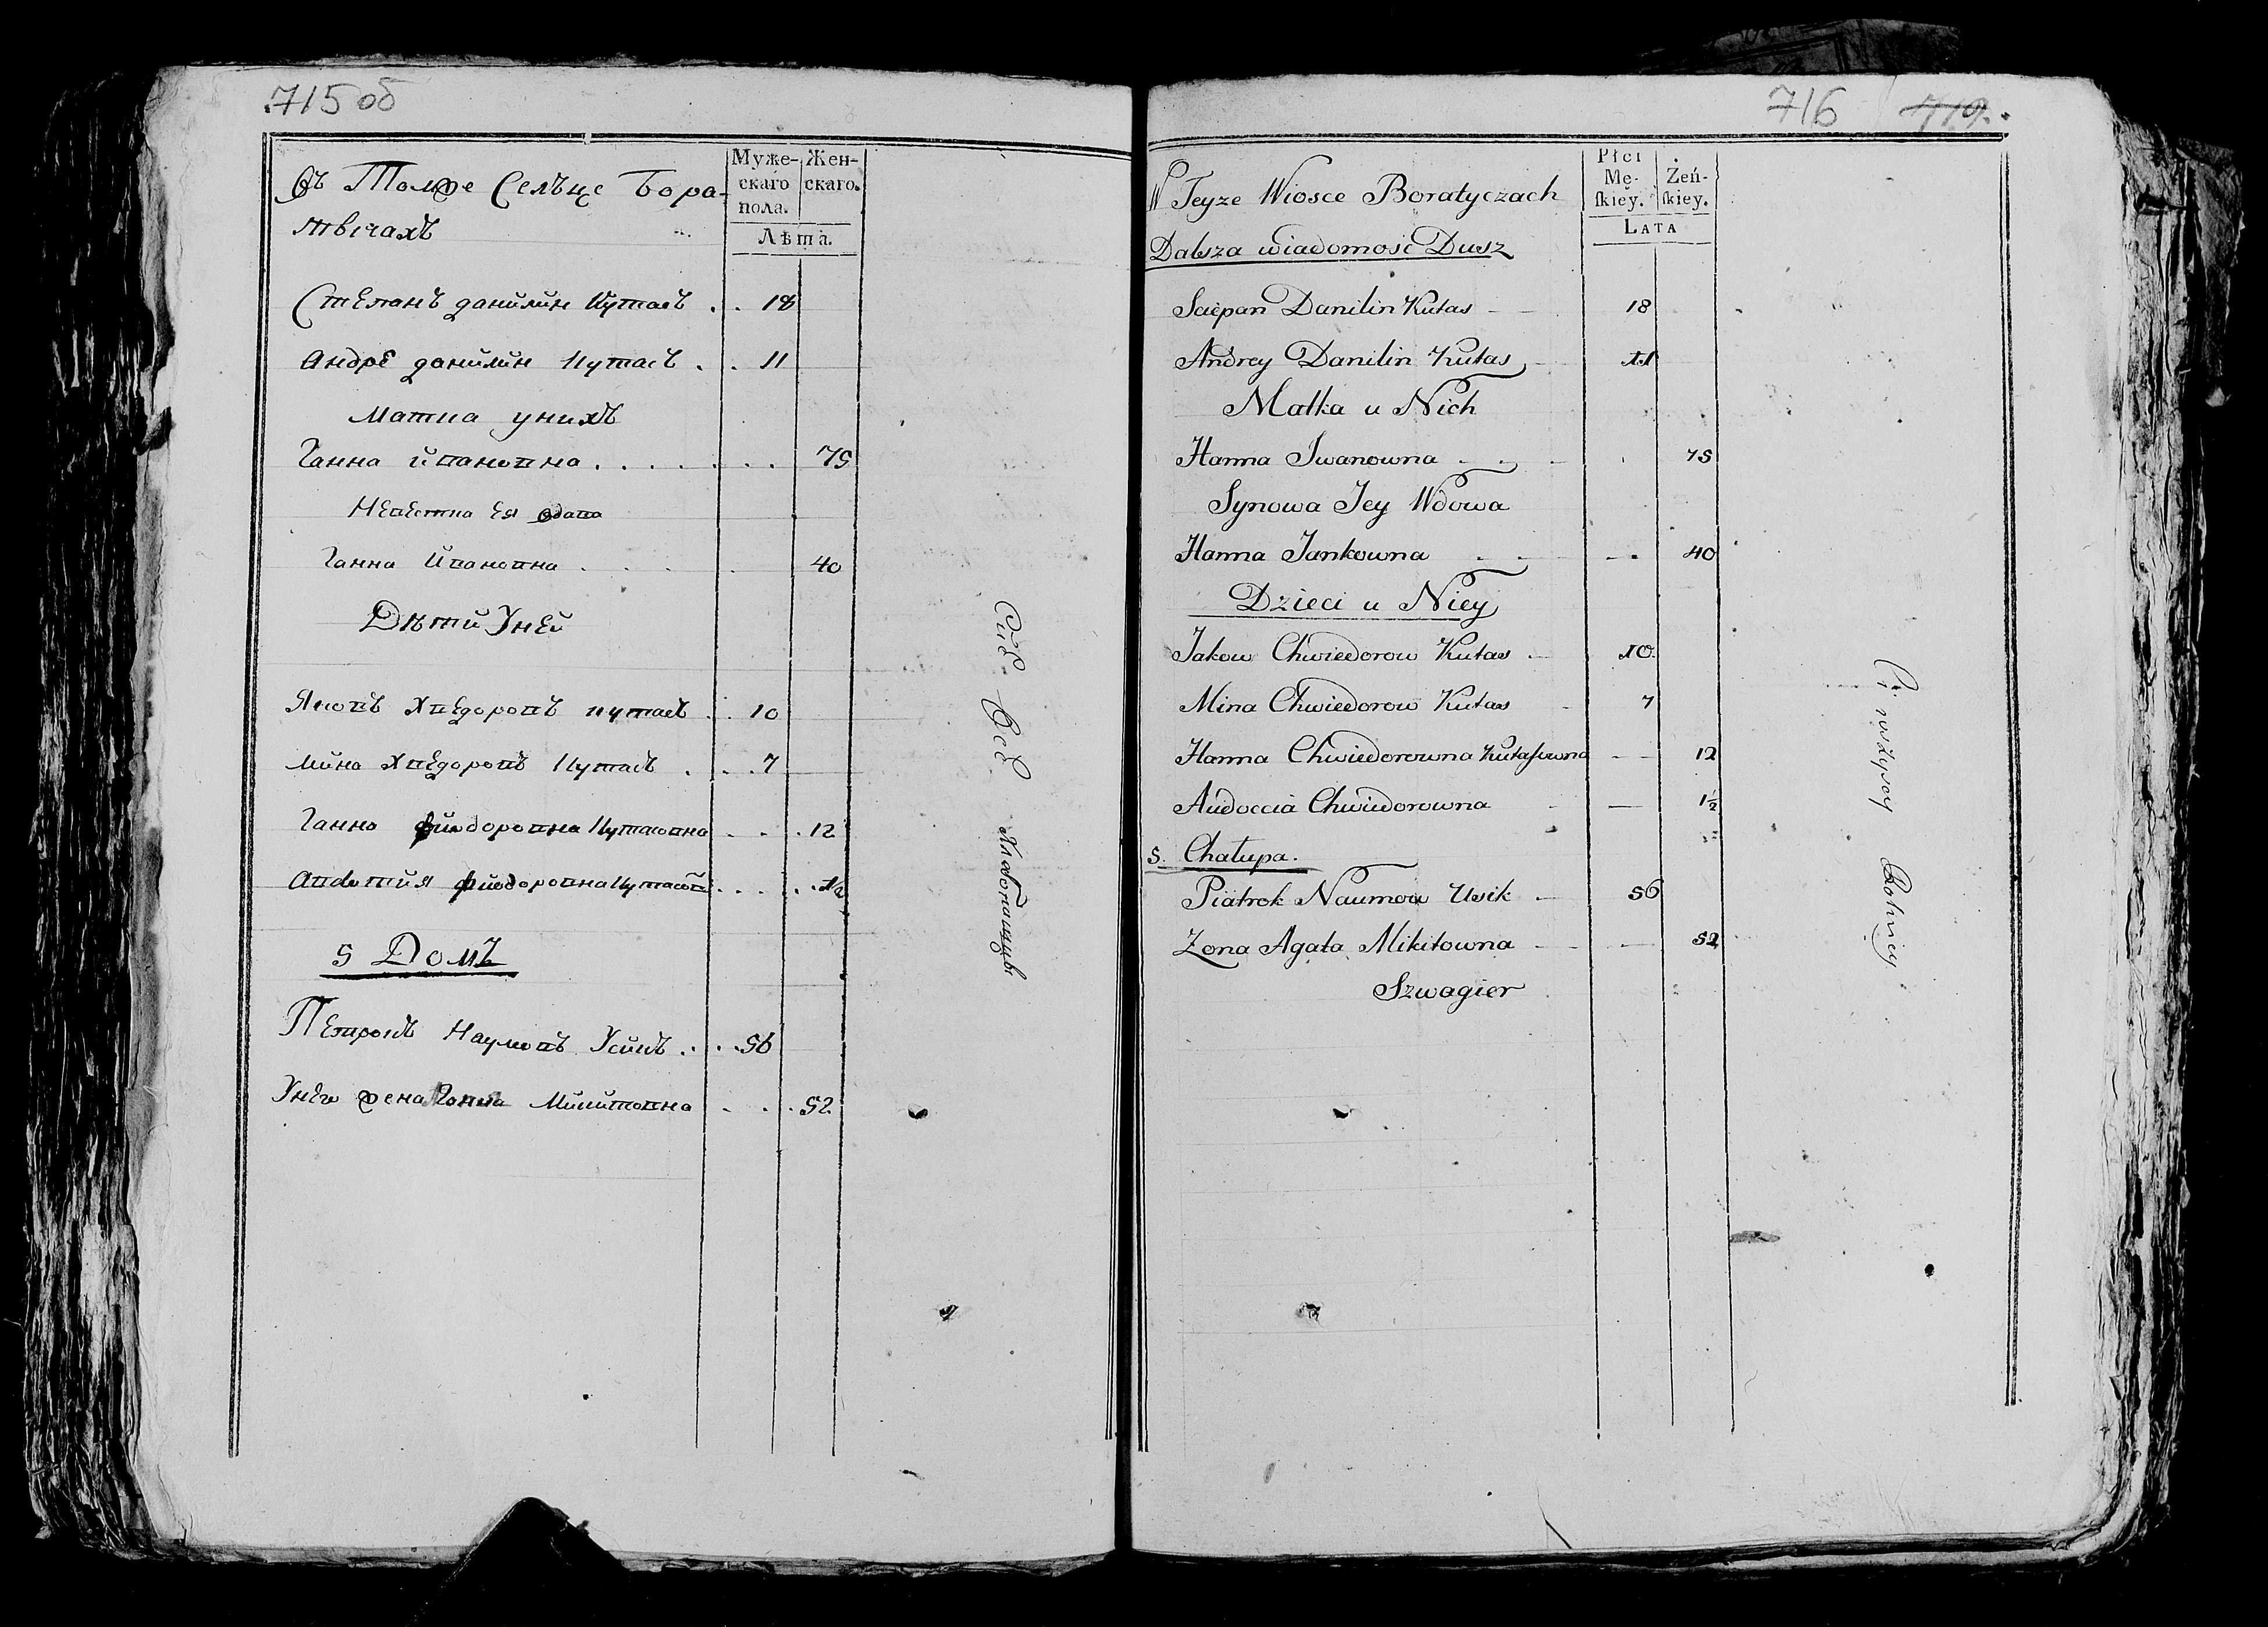 715 об
Въ Томже Селѣце Бора-
тычахъ
Муже-
скаго
пола.
Жен-
скаго.
Лѣта.
Степанъ данилин Кутасъ . . 18
Андрe данилин Кутасъ . . 11
Матка унихъ
Ганна ивановна . . . . . . . 75
Невестка ея вдова
Ганна Ивановна . . . . . 40
Дѣти Уней
Яковъ Хведоровъ Кутасъ . . 10
Мина Хведоровъ Кутасъ . . . 7
Ганна фиодоровна Кутасовна . . . 12
Авдотия фиодоровна . . . . . 1½
5 Домъ
Петрокъ Наумовъ Усикъ . . . 56
Унего жена Микитовна . . . 52
Сие Все Хлебопашцы
716 719.
W Teyze Wiosce Boratyczach
Dalsza wiadomosc Dusz
Płci
Mę-
ſkiey.
Żeń-
ſkiey.
LATA
Sciepan Danilin Kutas – – 18
Andrey Danilin Kutas – 11
Matka u Nich
Hanna Iwanowna – – – 75
Synowa Jey Wdowa
Hanna Jankowna – – – 40
Dzieci u Niey
Jakow Chwiedorow Kutas – 10.
Mina Chwiedorow Kutas – 7
Hanna Chwiedorowna Kutaſowna – – 12
Audoccia Chwiedorowna – – 1½
5. Chałupa.
Piatrok Naumow Usik – 56
Zona Agata Mikitowna – – 52
Szwagier
Ci wszyscy Rolnicy